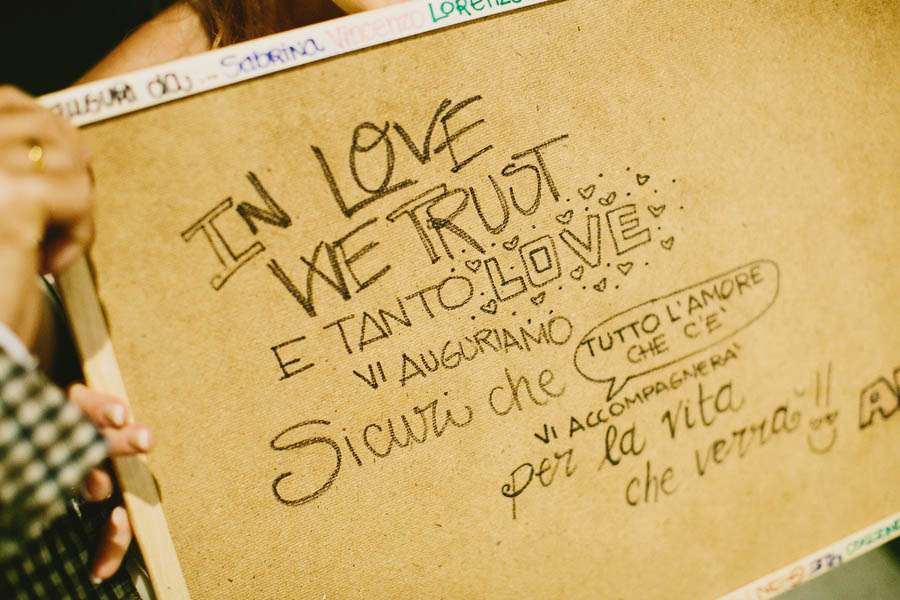 AUGURI DA... SABRINA VINCENZO LORENZO
IN LOVE
WE TRUST
E TANTO LOVE
VI AUGURIAMO
Sicuri che TUTTO L'AMORE
CHE C'E'
VI ACCOMPAGNERA'
per la vita
che verrà!!